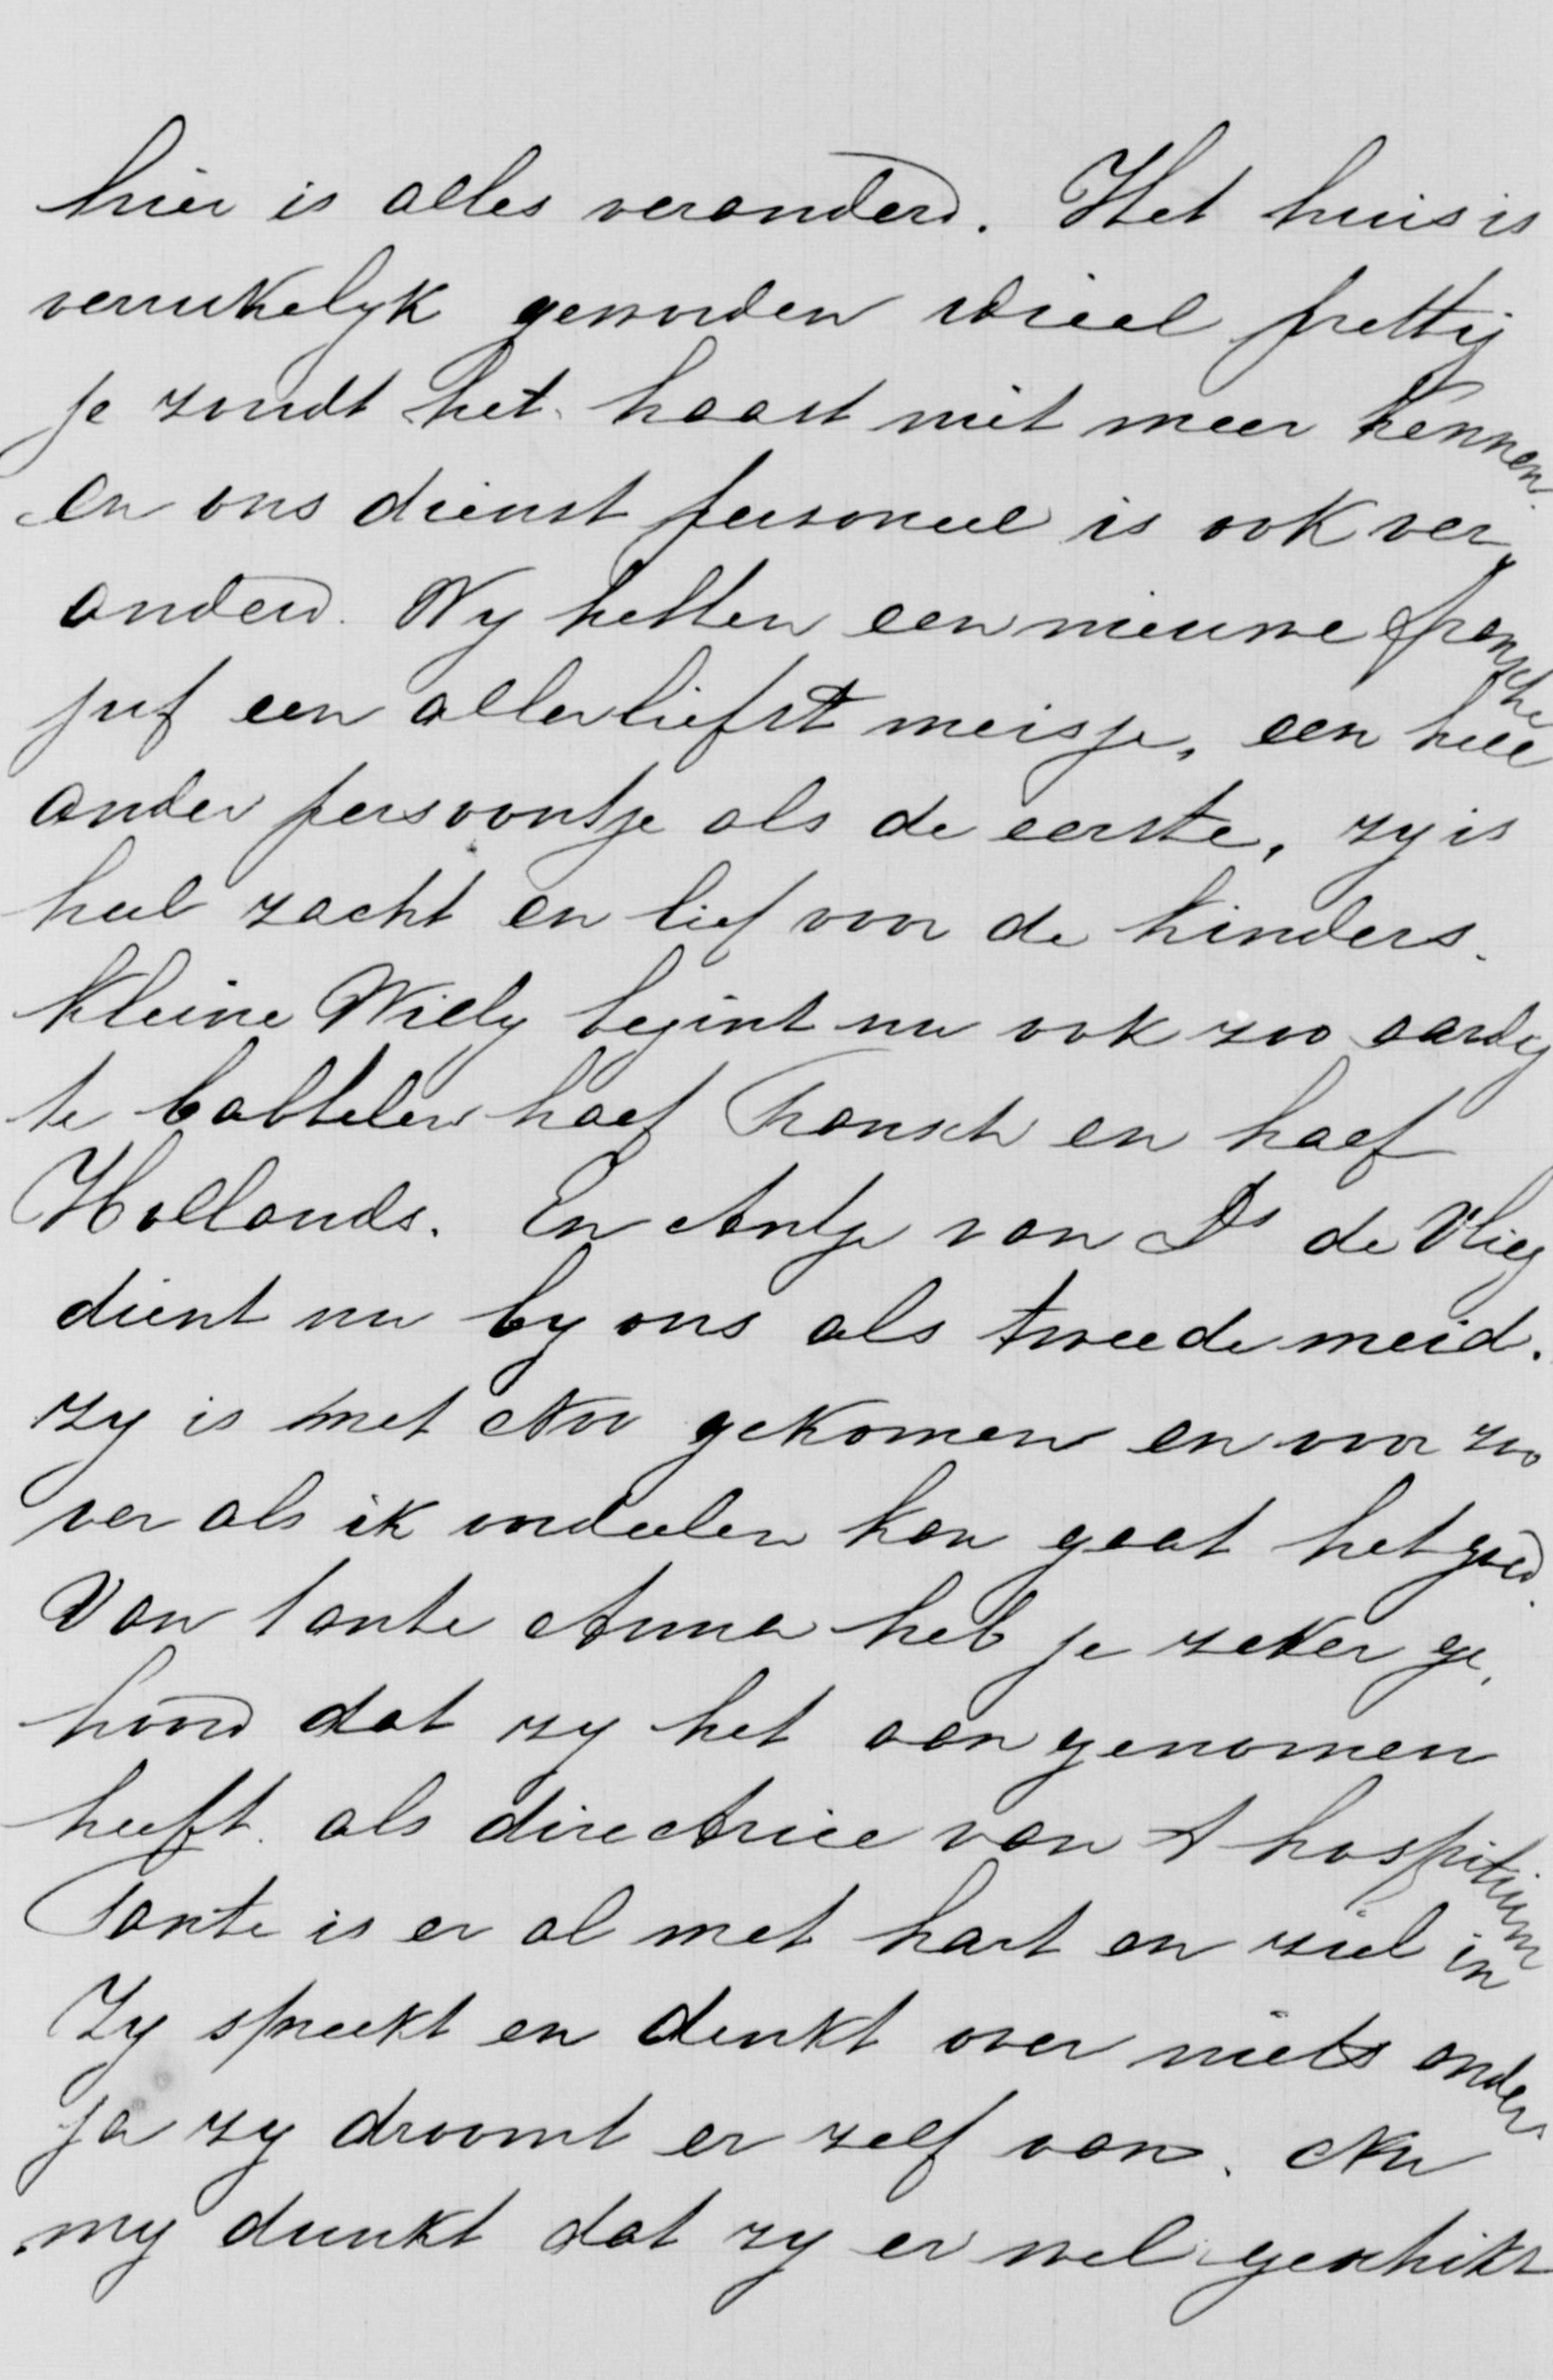 hier is alles veranderd. Het huis is
verrukelyk geworden ideeel prettig
je zoudt het haast niet meer kennen
en ons dienst personeel is ook ver
anderd. Wy hebben een nieuwe fransche
juf een allerliefst meisje, een heel
ander persoontje als de eerste, zy is
heel zacht en lief voor de kinders.
kleine Willy begint nu ook zoo aardig
te babbelen half Fransch en half
Hollands. En Antje van Ds de Vlieg
dient nu by ons als tweede meid.
zy is met Nov gekomen en voor zoo
ver als ik ondeelen kan gaat het goed.
Van tante Anna heb je zeker ge,
hoord dat zy het aan genomen
heeft als directrice van t hospitium
Tante is er al met hart en ziel in
Zy spreekt en denkt over niets anders
ja zy droomt er zelf van. Nu
my dunkt dat zy er wel geschikt